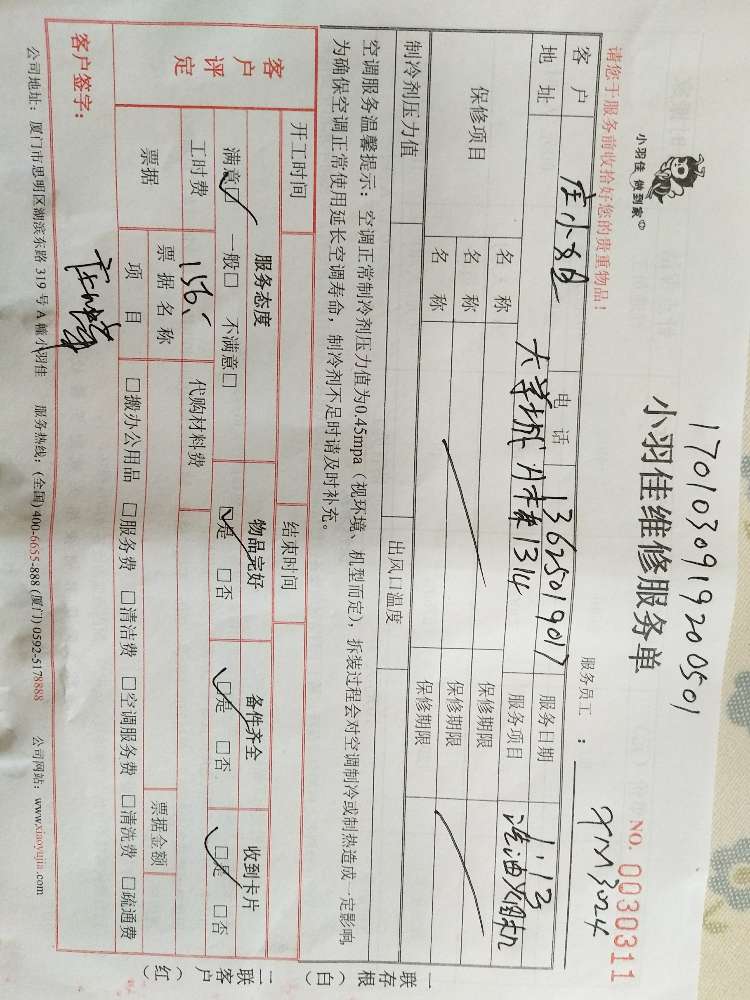 小羽佳 做到家
17010309192 00501
小羽佳维修服务单
NO. 0030311
请您于服务前收拾好您的贵重物品!
服务员工: XM3024
客户 庄小姐 电话 13625019017 服务日期 1.13
地址 大学城 1314 服务项目 洗油烟机
保修项目 名称 保修期限
名称 保修期限
名称 保修期限
制冷剂压力值 出风口温度
空调服务温馨提示:空调正常制冷剂压力值为0.45mpa(视环境、机型而定),拆装过程会对空调制冷或制热造成一定影响,
为确保空调正常使用延长空调寿命,制冷剂不足时请及时补充。
开工时间 结束时间
客户评定 服务态度 物品完好 备件齐全 收到卡片
满意□ 一般□ 不满意□ □是 □否 □是 □否 □是 □否
工时费 156. 代购材料费
票据 票据名称 票据金额
项目 □搬办公用品 □服务费 □清洁费 □空调服务费 □清洗费 □疏通费
客户签字:
公司地址:厦门市思明区湖滨东路 319 号 A 幢小羽佳 服务热线:(全国) 400-6655-888 (厦门) 0592-5178888 公司网站:www.xiaoyujia.com
一联存根(白)
二联客户(红)